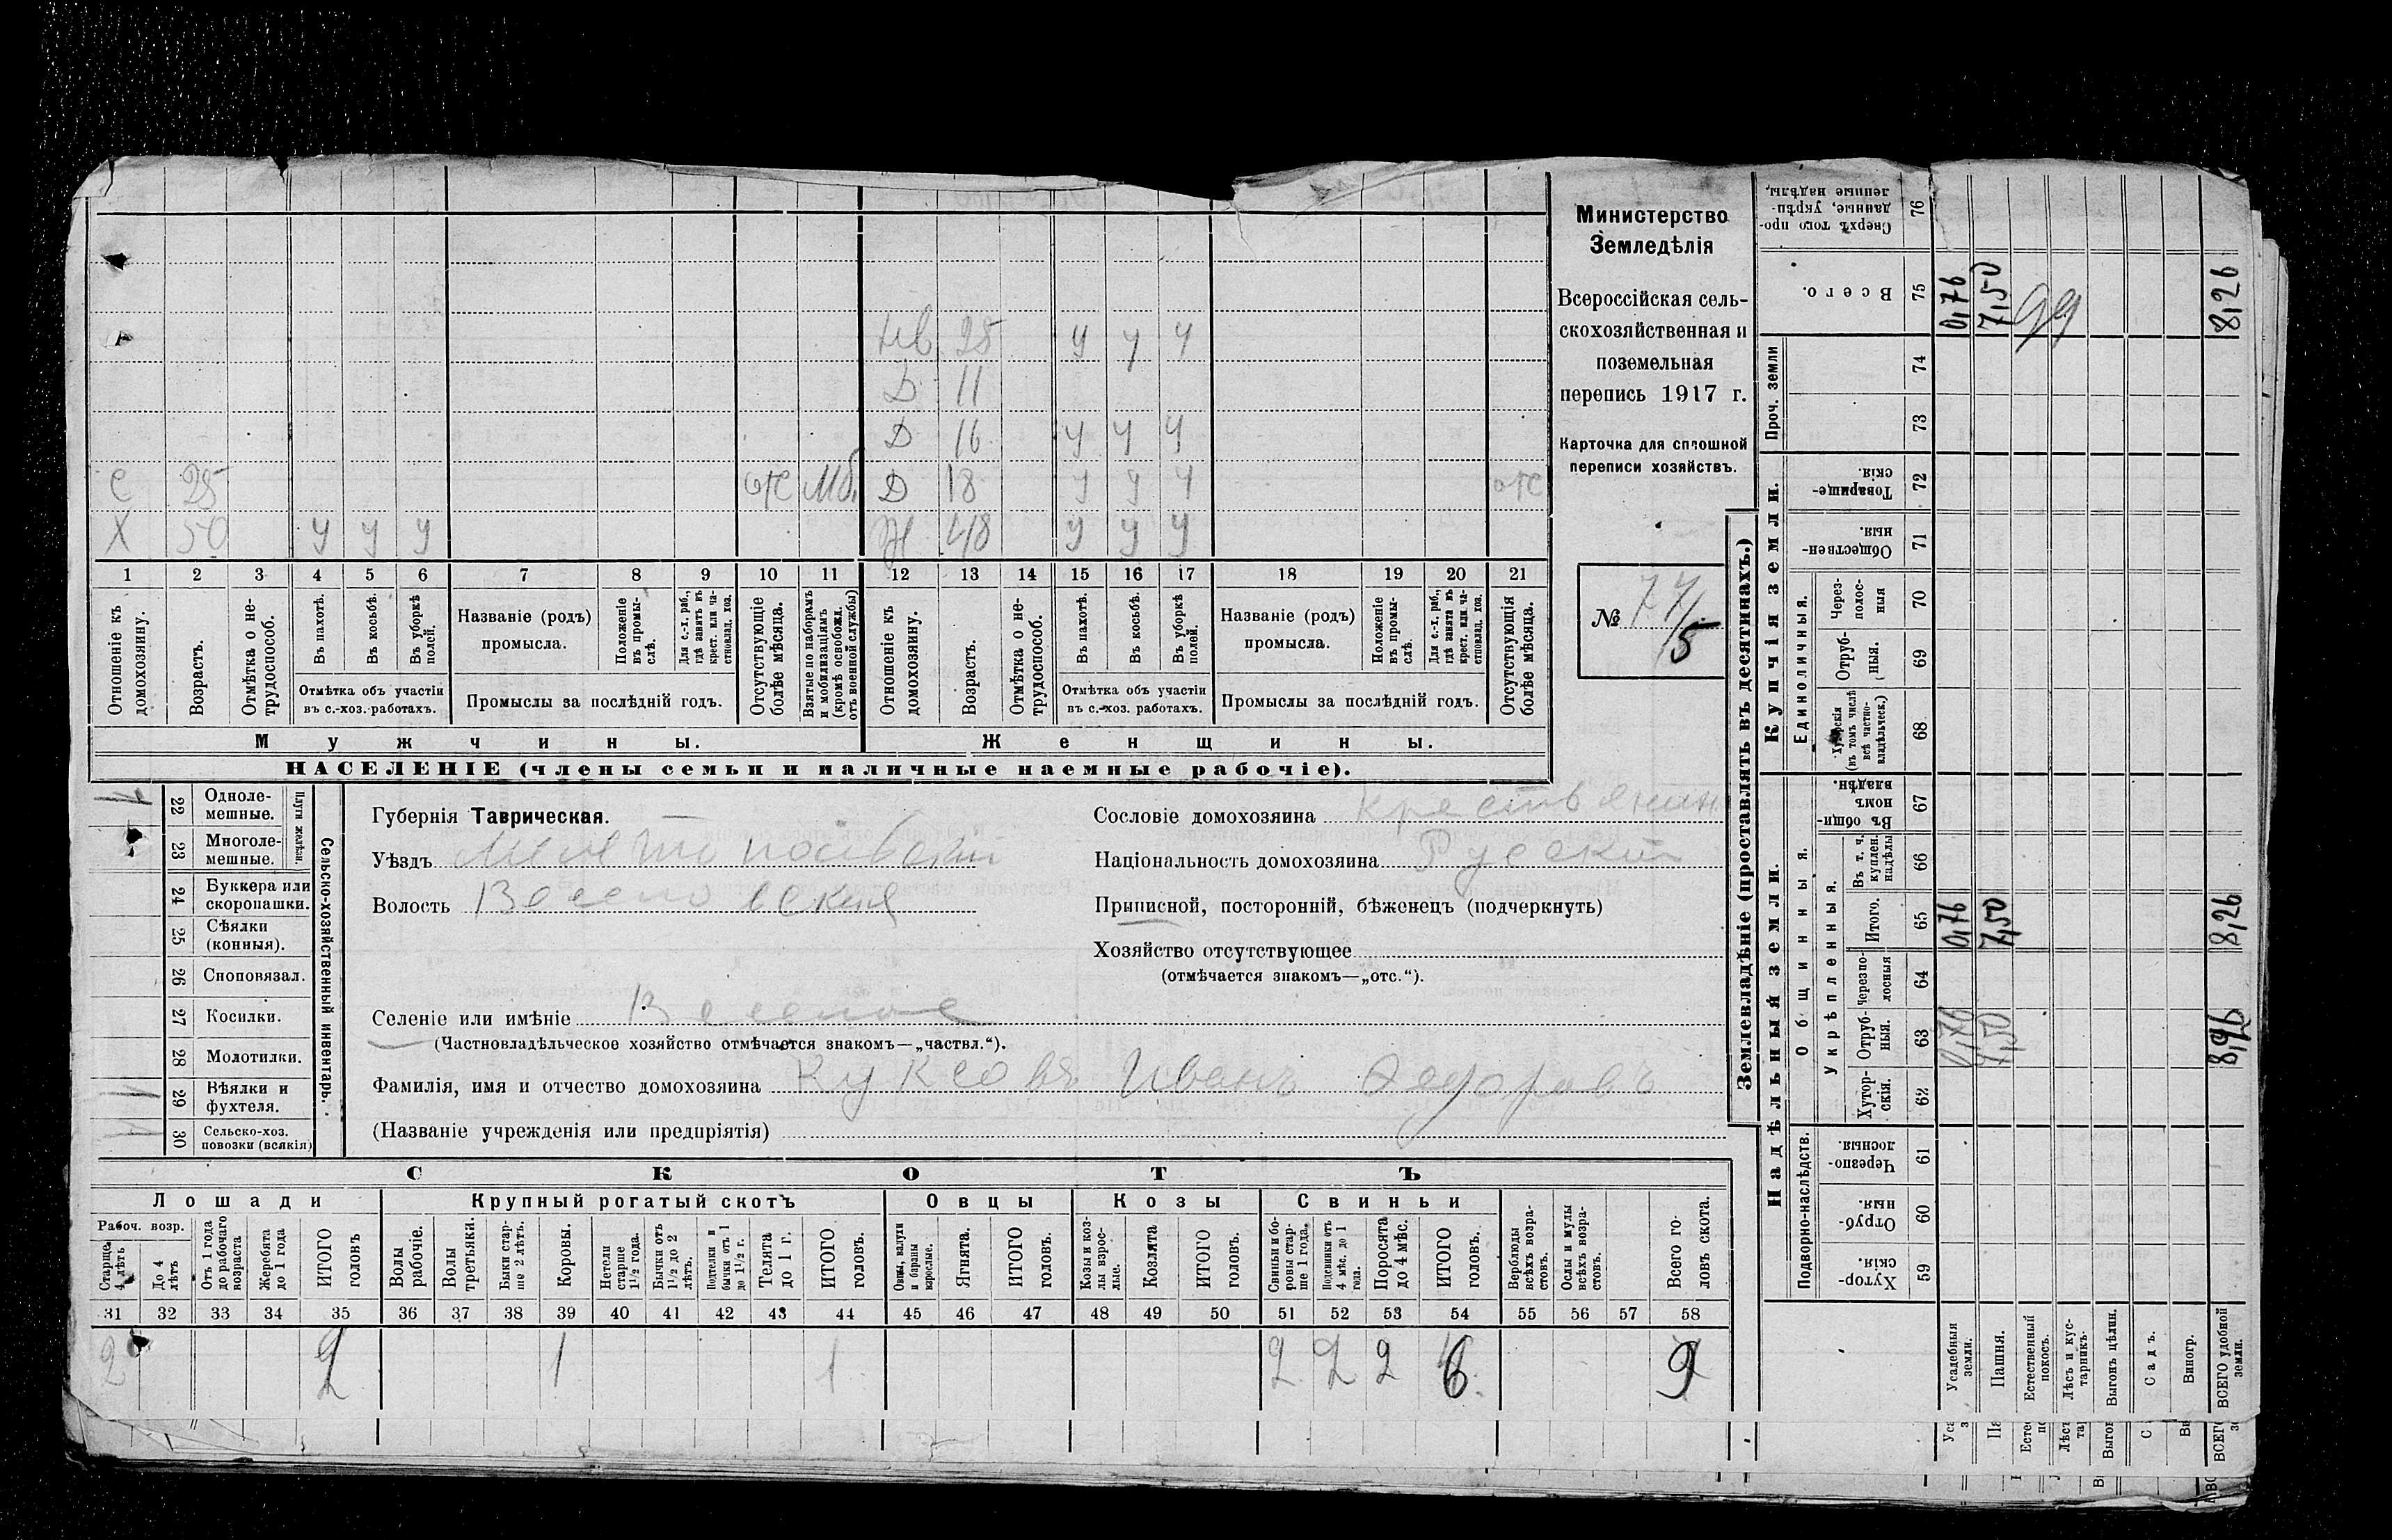 Министерство
Земледѣлія
Всероссійская сель-
скохозяйственная и
поземельная
перепись 1917 г.
Карточка для сплошной
переписи хозяйствъ.
№ 77/5
Нв 25 У У У
Д 11
Д 16 У У У
С 25 отс Мб. Д 18 У У У отс
Х 50 У У У Ж 48 У У У
1 2 3 4 5 6 7 8 9 10 11 12 13 14 15 16 17 18 19 20 21
Отношеніе къ домохозяину.
Возрастъ.
Отмѣтка о не-трудоспособ.
Въ пахотѣ.
Въ косьбѣ.
Въ уборкѣ полей.
Отмѣтка объ участіи въ с.-хоз. работахъ.
Названіе (родъ) промысла.
Положеніе въ промы-слѣ.
Для с.-х. раб., гдѣ занятъ въ крест. или ча-стновлад. хоз.
Промыслы за послѣдній годъ.
Отсутствующіе болѣе мѣсяца.
Взятые по наборамъ и мобилизаціямъ (кромѣ освобожд. отъ военной службы)
Отношеніе къ домохозяину.
Возрастъ.
Отмѣтка о не-трудоспособ.
Въ пахотѣ.
Въ косьбѣ.
Въ уборкѣ полей.
Отмѣтка объ участіи въ с.-хоз. работахъ.
Названіе (родъ) промысла.
Положеніе въ промы-слѣ.
Для с.-х. раб., гдѣ занята въ крест. или ча-стновлад. хоз.
Промыслы за послѣдній годъ.
Отсутствующія болѣе мѣсяца.
Мужчины. Женщины.
НАСЕЛЕНІЕ (члены семьи и наличные наемные рабочіе).
Сельско-хозяйственный инвентарь.
Плуги желѣзн.
22 Одноле-мешные. 1
23 Многоле-мешные.
24 Буккера или скоропашки.
25 Сѣялки (конныя).
26 Сноповязал.
27 Косилки.
28 Молотилки.
29 Вѣялки и фухтеля. 1
30 Сельско-хоз. повозки (всякія) 1
Губернія Таврическая.
Уѣздъ Мелитопольскій
Волость Веселовская
Селеніе или имѣніе Веселое
(Частновладѣльческое хозяйство отмѣчается знакомъ—„частвл.“).
Фамилія, имя и отчество домохозяина Куксовъ Иванъ Федоровъ
(Названіе учрежденія или предпріятія)
Сословіе домохозяина крестьянин
Національность домохозяина Русскій
Приписной, посторонній, бѣженецъ (подчеркнуть)
Хозяйство отсутствующее
(отмѣчается знакомъ—„отс.“).
СКОТЪ
Лошади Крупный рогатый скотъ Овцы Козы Свиньи
Рабоч. возр.
Старше 4 лѣтъ
До 4 лѣтъ
Отъ 1 года до рабочаго возраста
Жеребята до 1 года
ИТОГО головъ
Волы рабочіе.
Волы третьяки.
Быки стар-ше 2 лѣтъ.
Коровы.
Нетели старше 1½ года.
Бычки отъ 1½ до 2 лѣтъ.
Подтелки и бычки отъ 1 до 1½ г.
Телята до 1 г.
ИТОГО головъ.
Овцы, валухи и бараны взрослые.
Ягнята.
ИТОГО головъ.
Козы и коз-лы взрос-лые.
Козлята
ИТОГО головъ.
Свиньи и бо-ровы стар-ше 1 года.
Подсвинки отъ 4 мѣс. до 1 года.
Поросята до 4 мѣс.
ИТОГО головъ.
Верблюды всѣхъ возра-стовъ.
Ослы и мулы всѣхъ возра-стовъ.
Всего го-ловъ скота.
31 32 33 34 35 36 37 38 39 40 41 42 43 44 45 46 47 48 49 50 51 52 53 54 55 56 57 58
2 2 1 1 2 2 2 6 9
Землевладѣніе (проставлять въ десятинахъ.)
Купчія земли.
Надѣльныя земли.
Сверхъ того про-данные, укрѣп-ленные надѣлы, 76
Всего. 75 0,76 7,50 99 8,26
Проч. земли 74
73
Товарище-скія. 72
Обществен-ныя. 71
Единоличныя.
Через-полос-ныя 70
Отруб-ныя. 69
Хуторскія (въ томъ числѣ всѣ частно-владѣльческ.) 68
Общинныя.
Въ общи-номъ владѣн. 67
Укрѣпленныя.
Въ т. ч. куплен. надѣлы 66
Итого. 65 0,76 7,50 8,26
Черезпо-лосныя 64
Отруб-ныя. 63 0,76 7,50
Хутор-скія. 62
Подворно-наслѣдств.
Черезпо-лосныя. 61
Отруб-ныя. 60
Хутор-скія. 59
Усадебныя земли.
Пашня.
Естественный покосъ.
Лѣсъ и кус-тарникъ.
Выгонъ цѣлин.
Садъ.
Виногр.
ВСЕГО удобной земли.